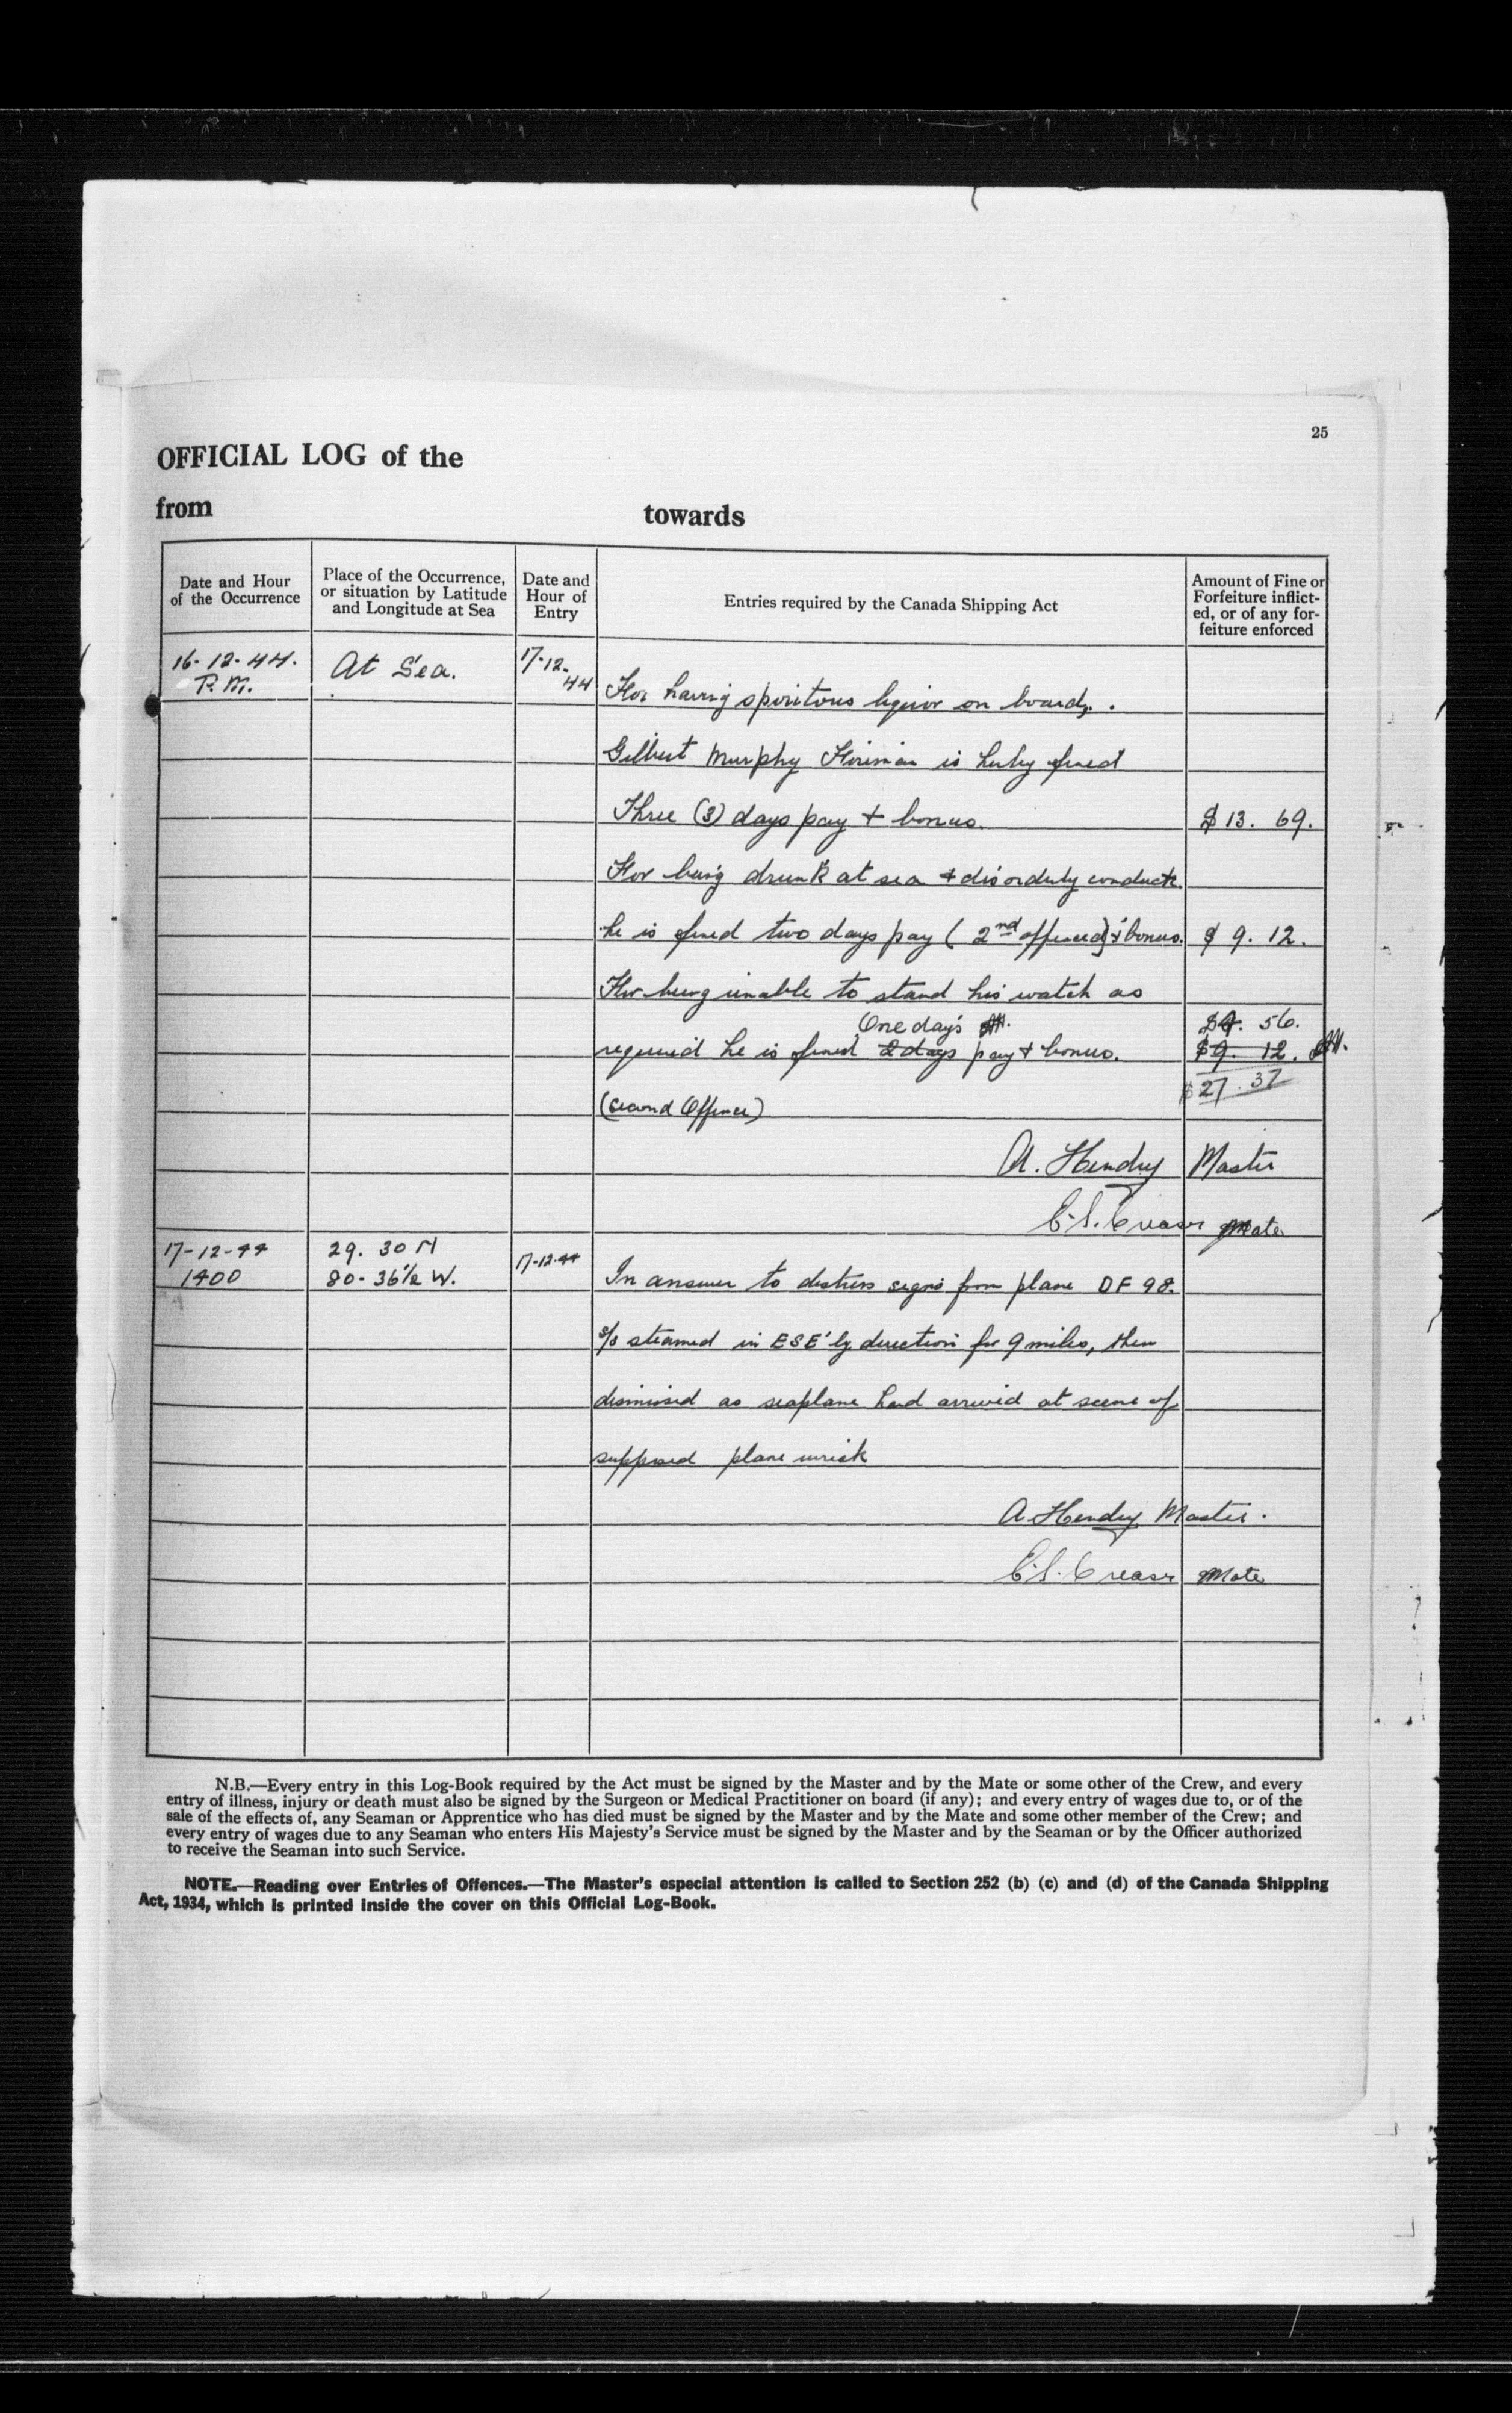 25
OFFICIAL LOG of the
from towards
Date and Hour of the Occurrence
Place of the Occurrence, or situation by Latitude and Longitude at Sea
Date and Hour of Entry
Entries required by the Canada Shipping Act
Amount of Fine or Forfeiture inflict-ed, or of any for-feiture enforced
16-12-44. At Sea. 17-12-44
P.M.
For having spiritous liquor on board,.
Gilbert Murphy Fireman is hereby fined
Three (3) days pay + bonus. $ 13. 69.
For being drunk at sea + disorderly conduct.
he is fined two days pay (2nd offence) + bonus. $ 9. 12.
For being unable to stand his watch as
One day's AH. $4. 56.
required he is fined 2 days pay + bonus. $9. 12. AH.
$27.37
(Second Offence)
A. Hendry Master
C.S. Creaser Mate
17-12-44 29. 30 N 17-12-44
1400 80-36½ W. In answer to distress signs from plane DF 98.
s/s steamed in ESE'ly direction for 9 miles, then
dismissed as seaplane had arrived at scene of
supposed plane wreck
A. Hendry Master.
C.S. Creaser Mate
N.B.—Every entry in this Log-Book required by the Act must be signed by the Master and by the Mate or some other of the Crew, and every
entry of illness, injury or death must also be signed by the Surgeon or Medical Practitioner on board (if any); and every entry of wages due to, or of the
sale of the effects of, any Seaman or Apprentice who has died must be signed by the Master and by the Mate and some other member of the Crew; and
every entry of wages due to any Seaman who enters His Majesty's Service must be signed by the Master and by the Seaman or by the Officer authorized
to receive the Seaman into such Service.
NOTE.—Reading over Entries of Offences.—The Master's especial attention is called to Section 252 (b) (c) and (d) of the Canada Shipping
Act, 1934, which is printed inside the cover on this Official Log-Book.